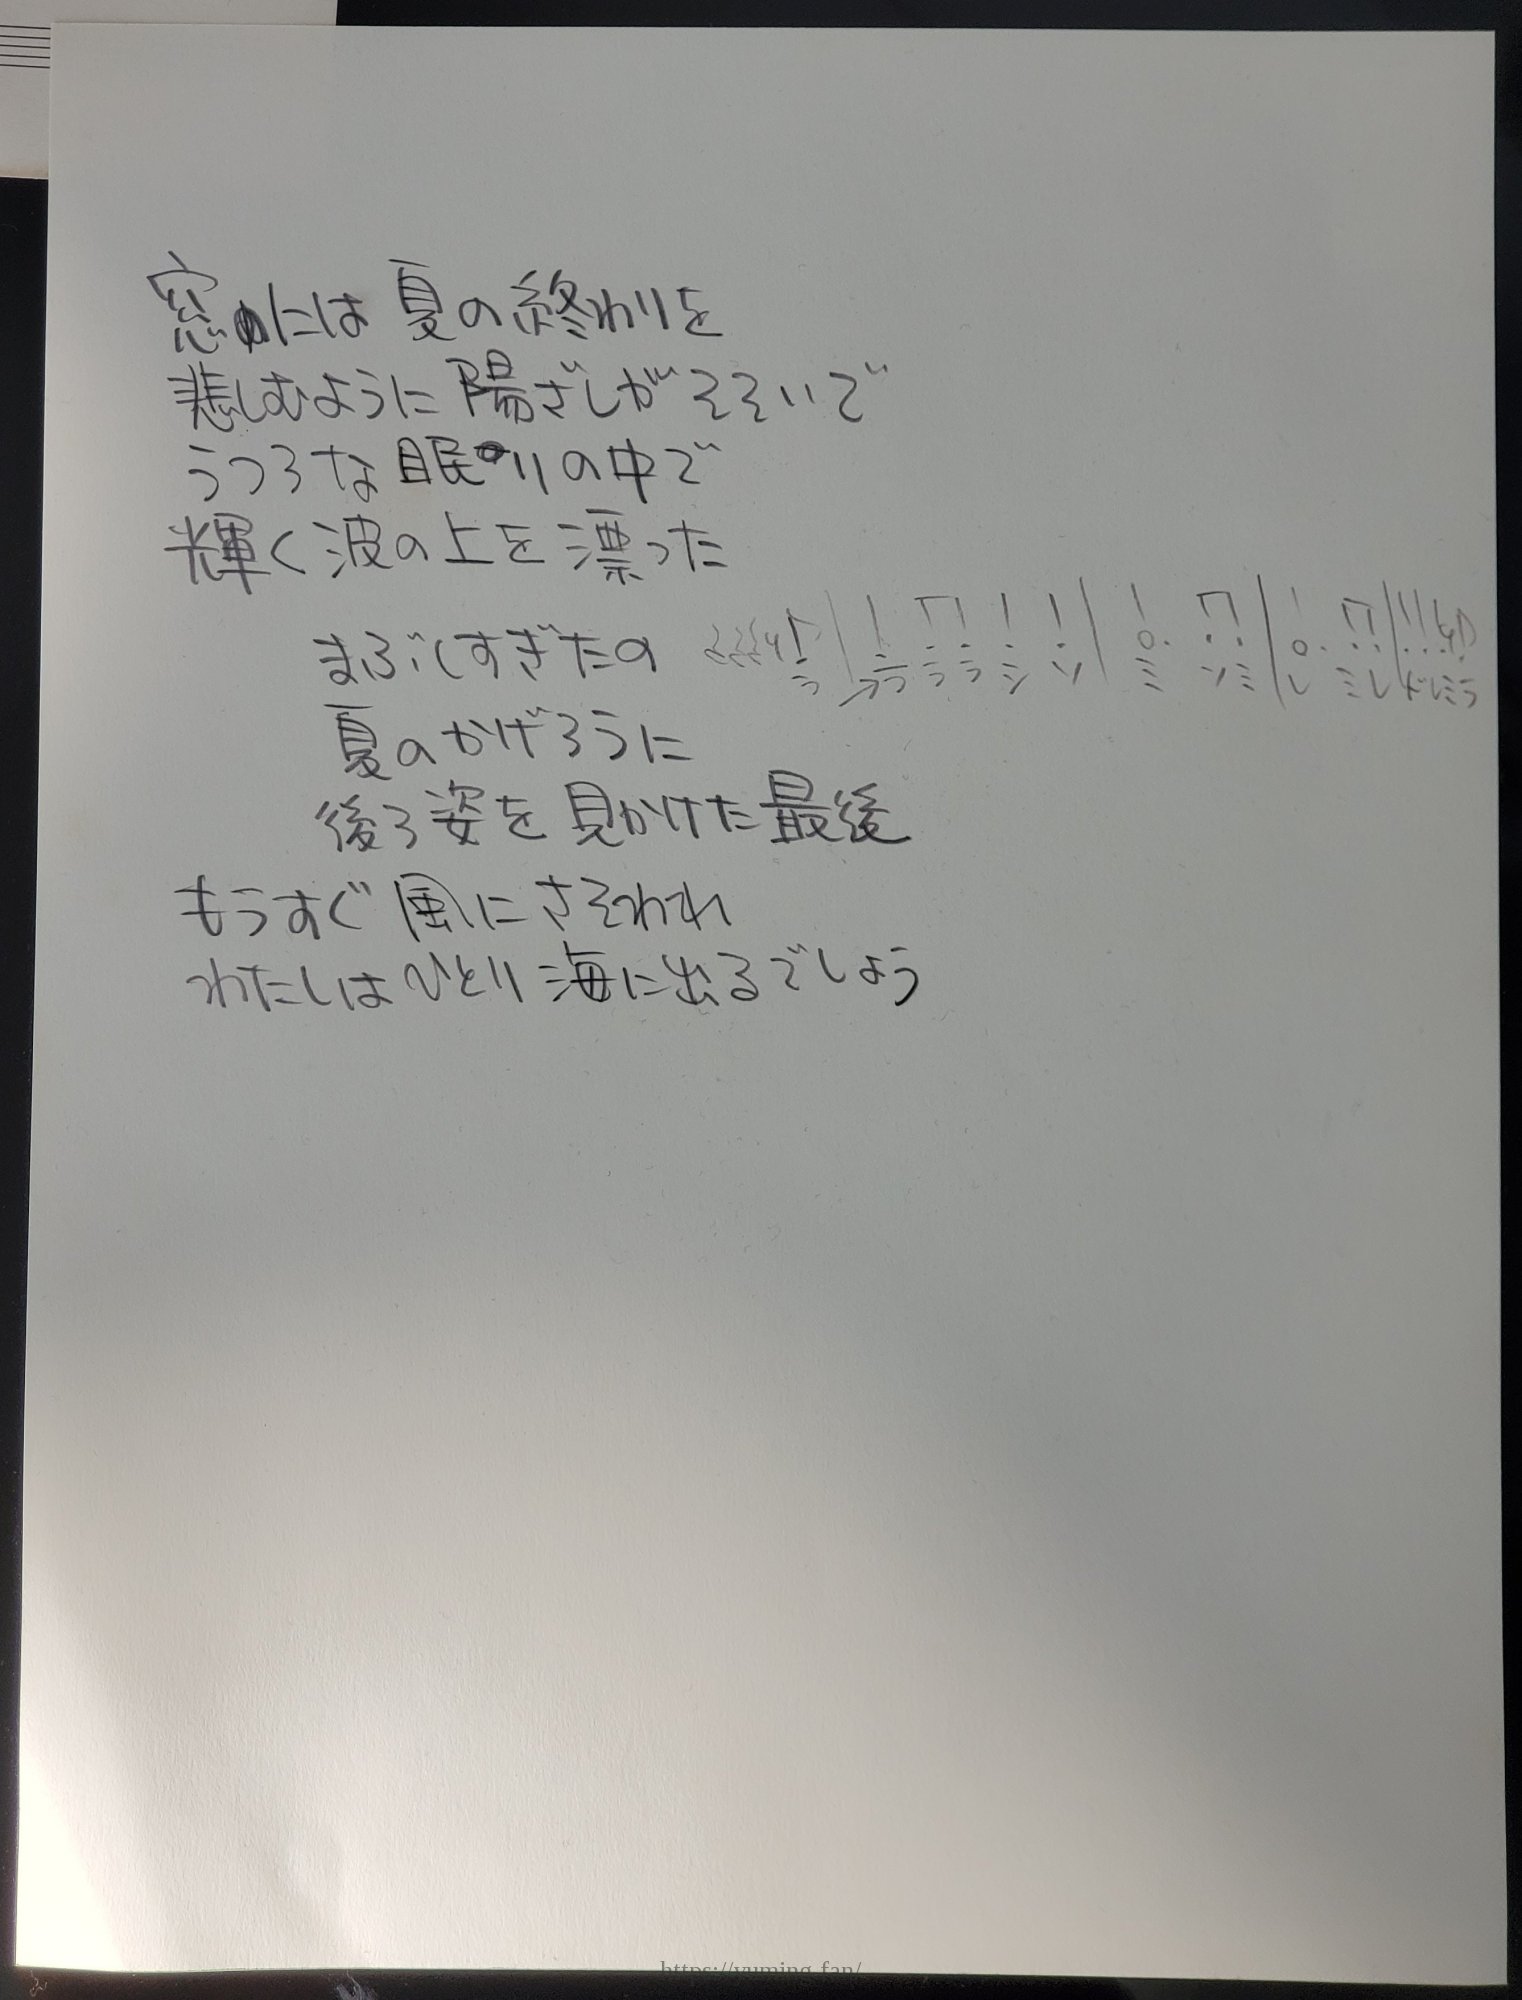 窓には夏の終わりを
悲しむように陽ざしがそそいで
うつろな眠りの中で
輝く波の上を漂った
まぶしすぎたの
ラ ララ ラ ラ シ ソ ミ ソ ミ レ ミ レ ド レ ミ ラ
夏のかげろうに
後ろ姿を見かけた最後
もうすぐ風にさそわれ
わたしはひとり海に出るでしょう
https://yuming.fan/